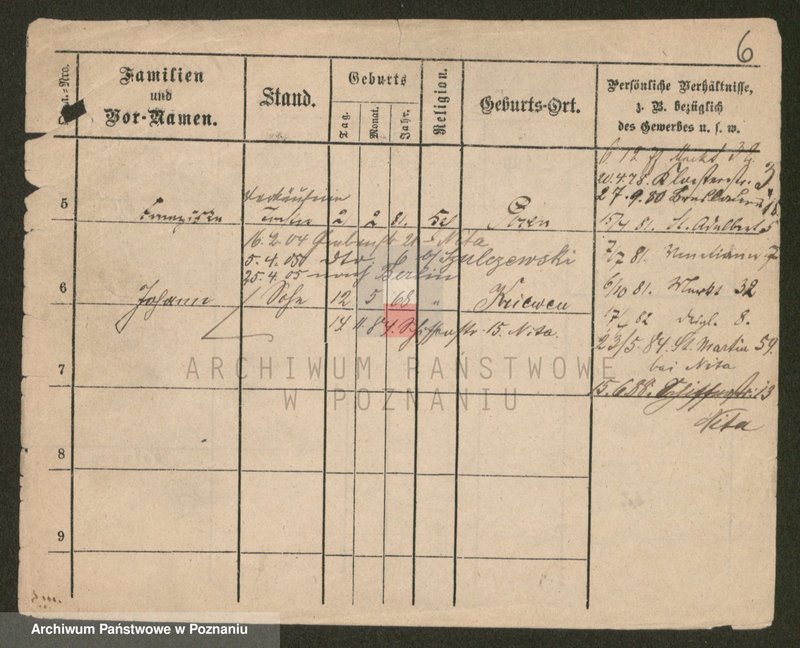 6
Familien
und
Vor-Namen.
Stand.
Geburts
Tag.
Monat.
Jahr.
Religion.
Geburts-Ort.
Persönliche Verhältnisse,
z. B. bezüglich
des Gewerbes u. s. w.
Markt
20.4.78. Klosterstr. 3
27.9.80 Breslauer
5
2 2 81. Posen
15/4 81. St. Adalbert 5
16.2.04 Grabenstr 21 Nita
5.4.05 dto 6 b/ Szulczewski
7/7 81. Venetianer 7
25.4.05 nach Berlin
6
Johann Sohn 12 5 68 " Kriewen
6/10 81. Markt 32
14 11. 84. Schifferstr. 15. Nita.
17/ 82 8.
23/5. 84. St. Martin 59.
bei Nita
7
15.6.88. Schifferstr. 13
Nita
8
9
ARCHIWUM PAŃSTWOWE
W POZNANIU
Archiwum Państwowe w Poznaniu